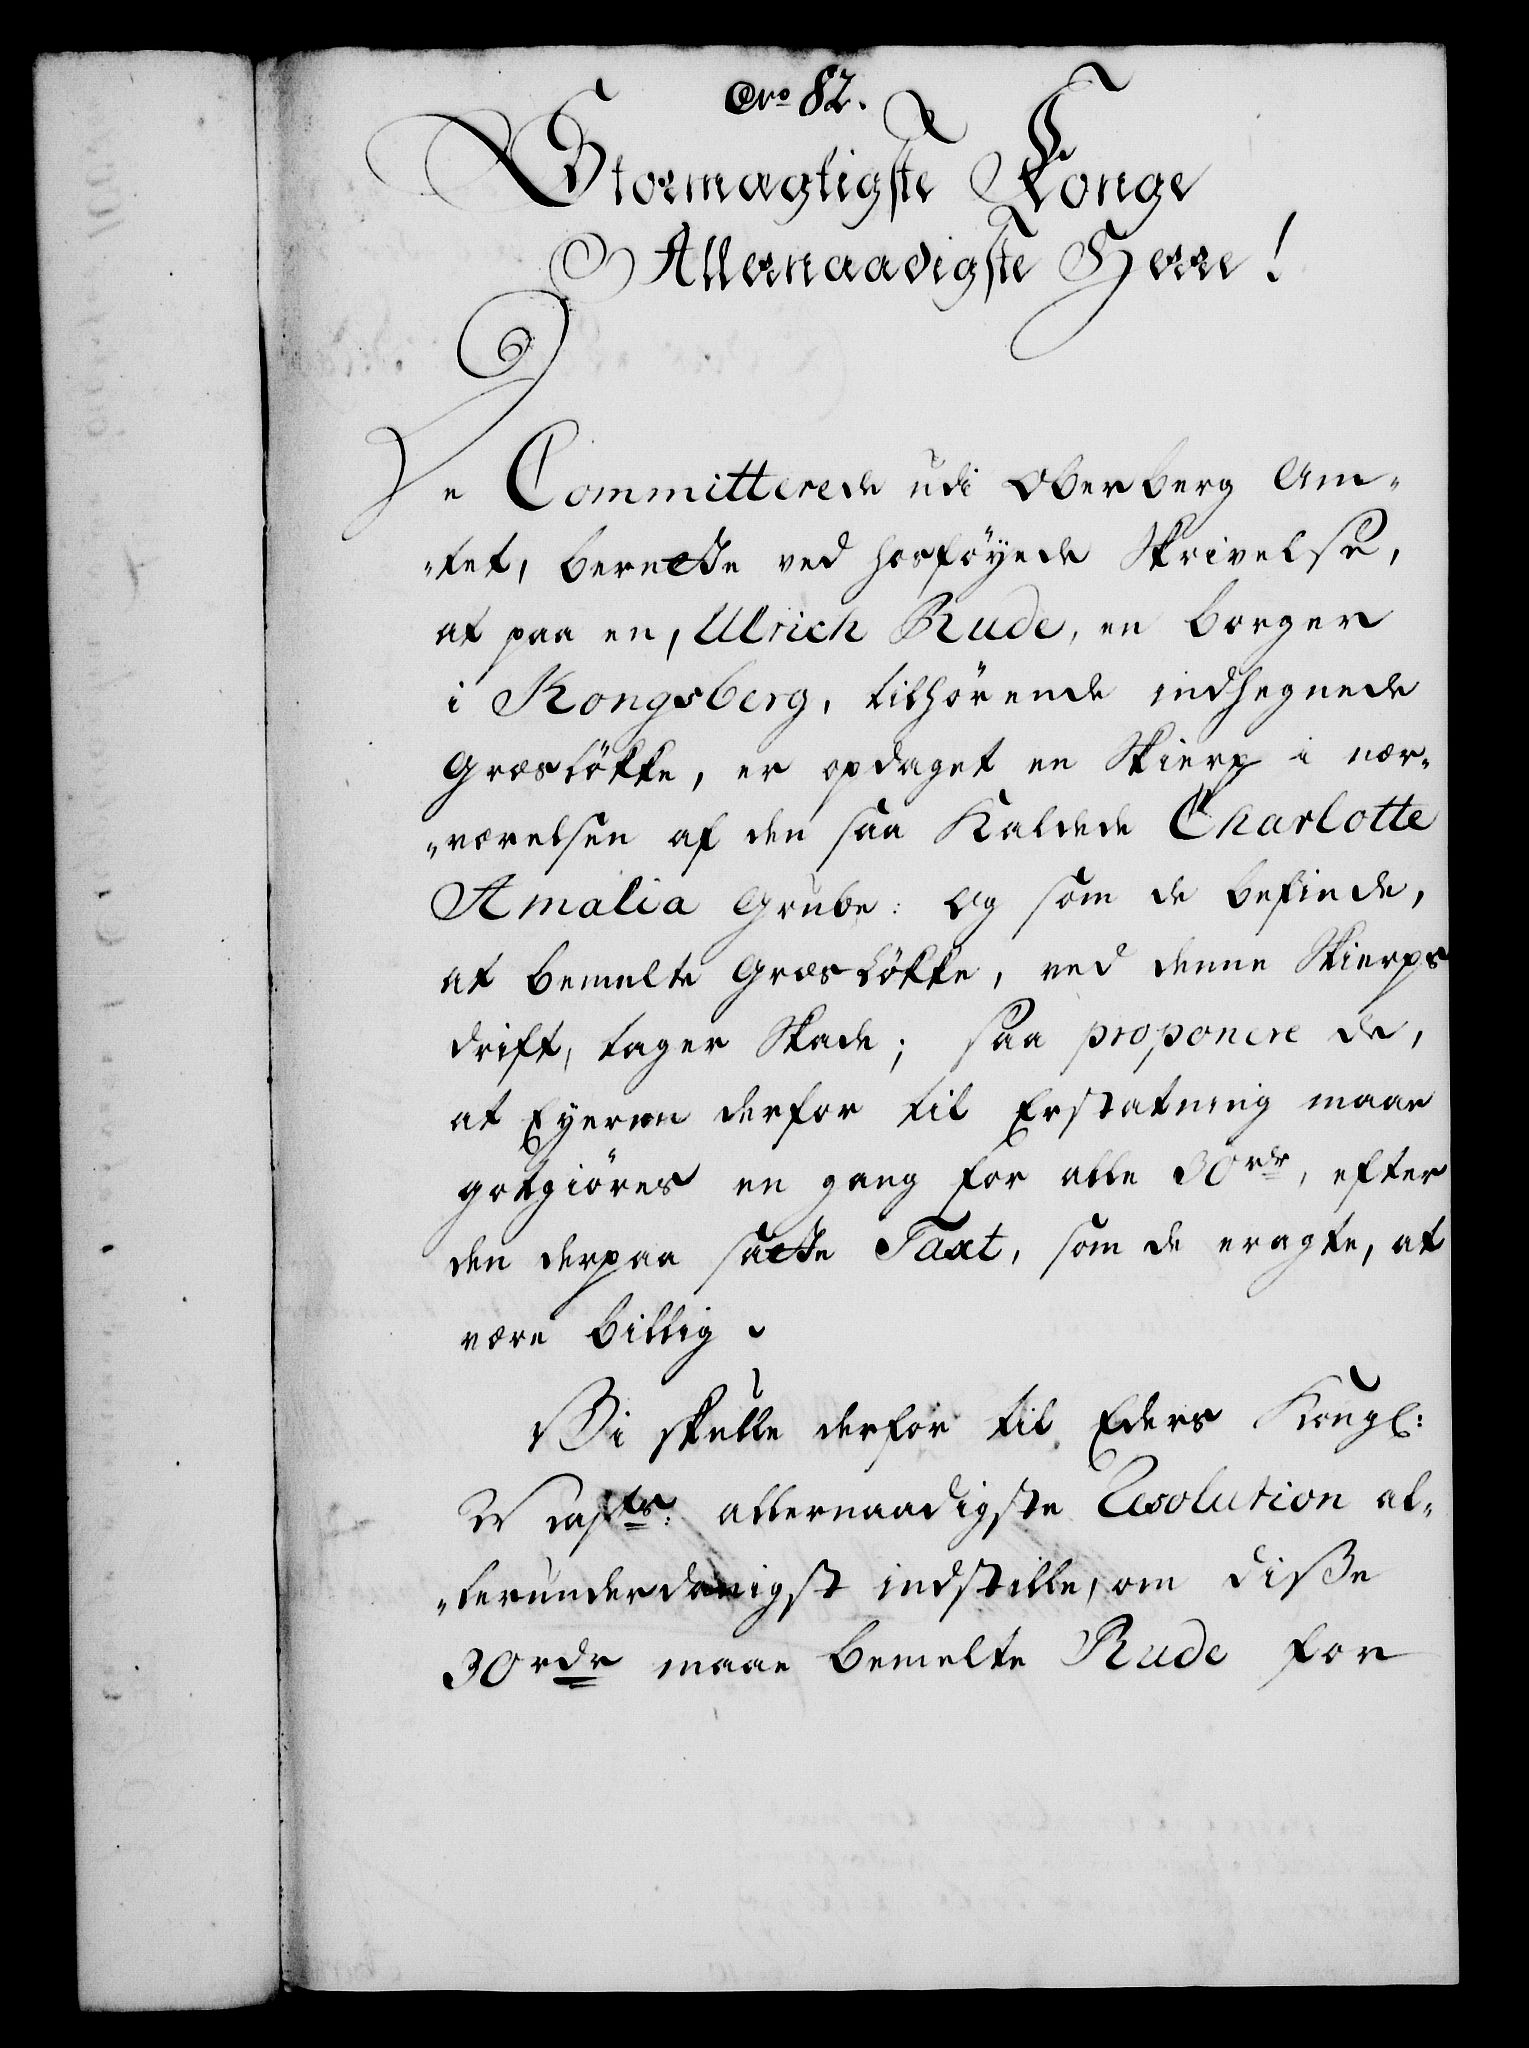 Nro 82.
Stormægtigste Konge
Allernaadigste Herre!
De Committerede udi Oberberg Am-
-tet, berette ved hosføyede Skrivelse,
at paa en, Ulrich Rude, en borger
i Kongsberg, tilhørende indhegnede
Græsløkke, er opdaget en Skierp i nær-
-værelsen af den saa Kaldede Charlotte
Amalia Grube: Og som de befinde,
at bemelte Græsløkke, ved denne Skierps
drift, tager Skade; saa proponere de,
at Eyeren derfor til Erstatning maae
gotgiøres en gang for alle 30 rdr, efter
den derpaa satte Taxt, som de eragte, at
være billig.
Vi skulle derfor til Eders Kongl:
Mayts: allernaadigste Resolution al-
-lerunderdanigst indstille, om diße
30 rdr maae bemelte Rude for